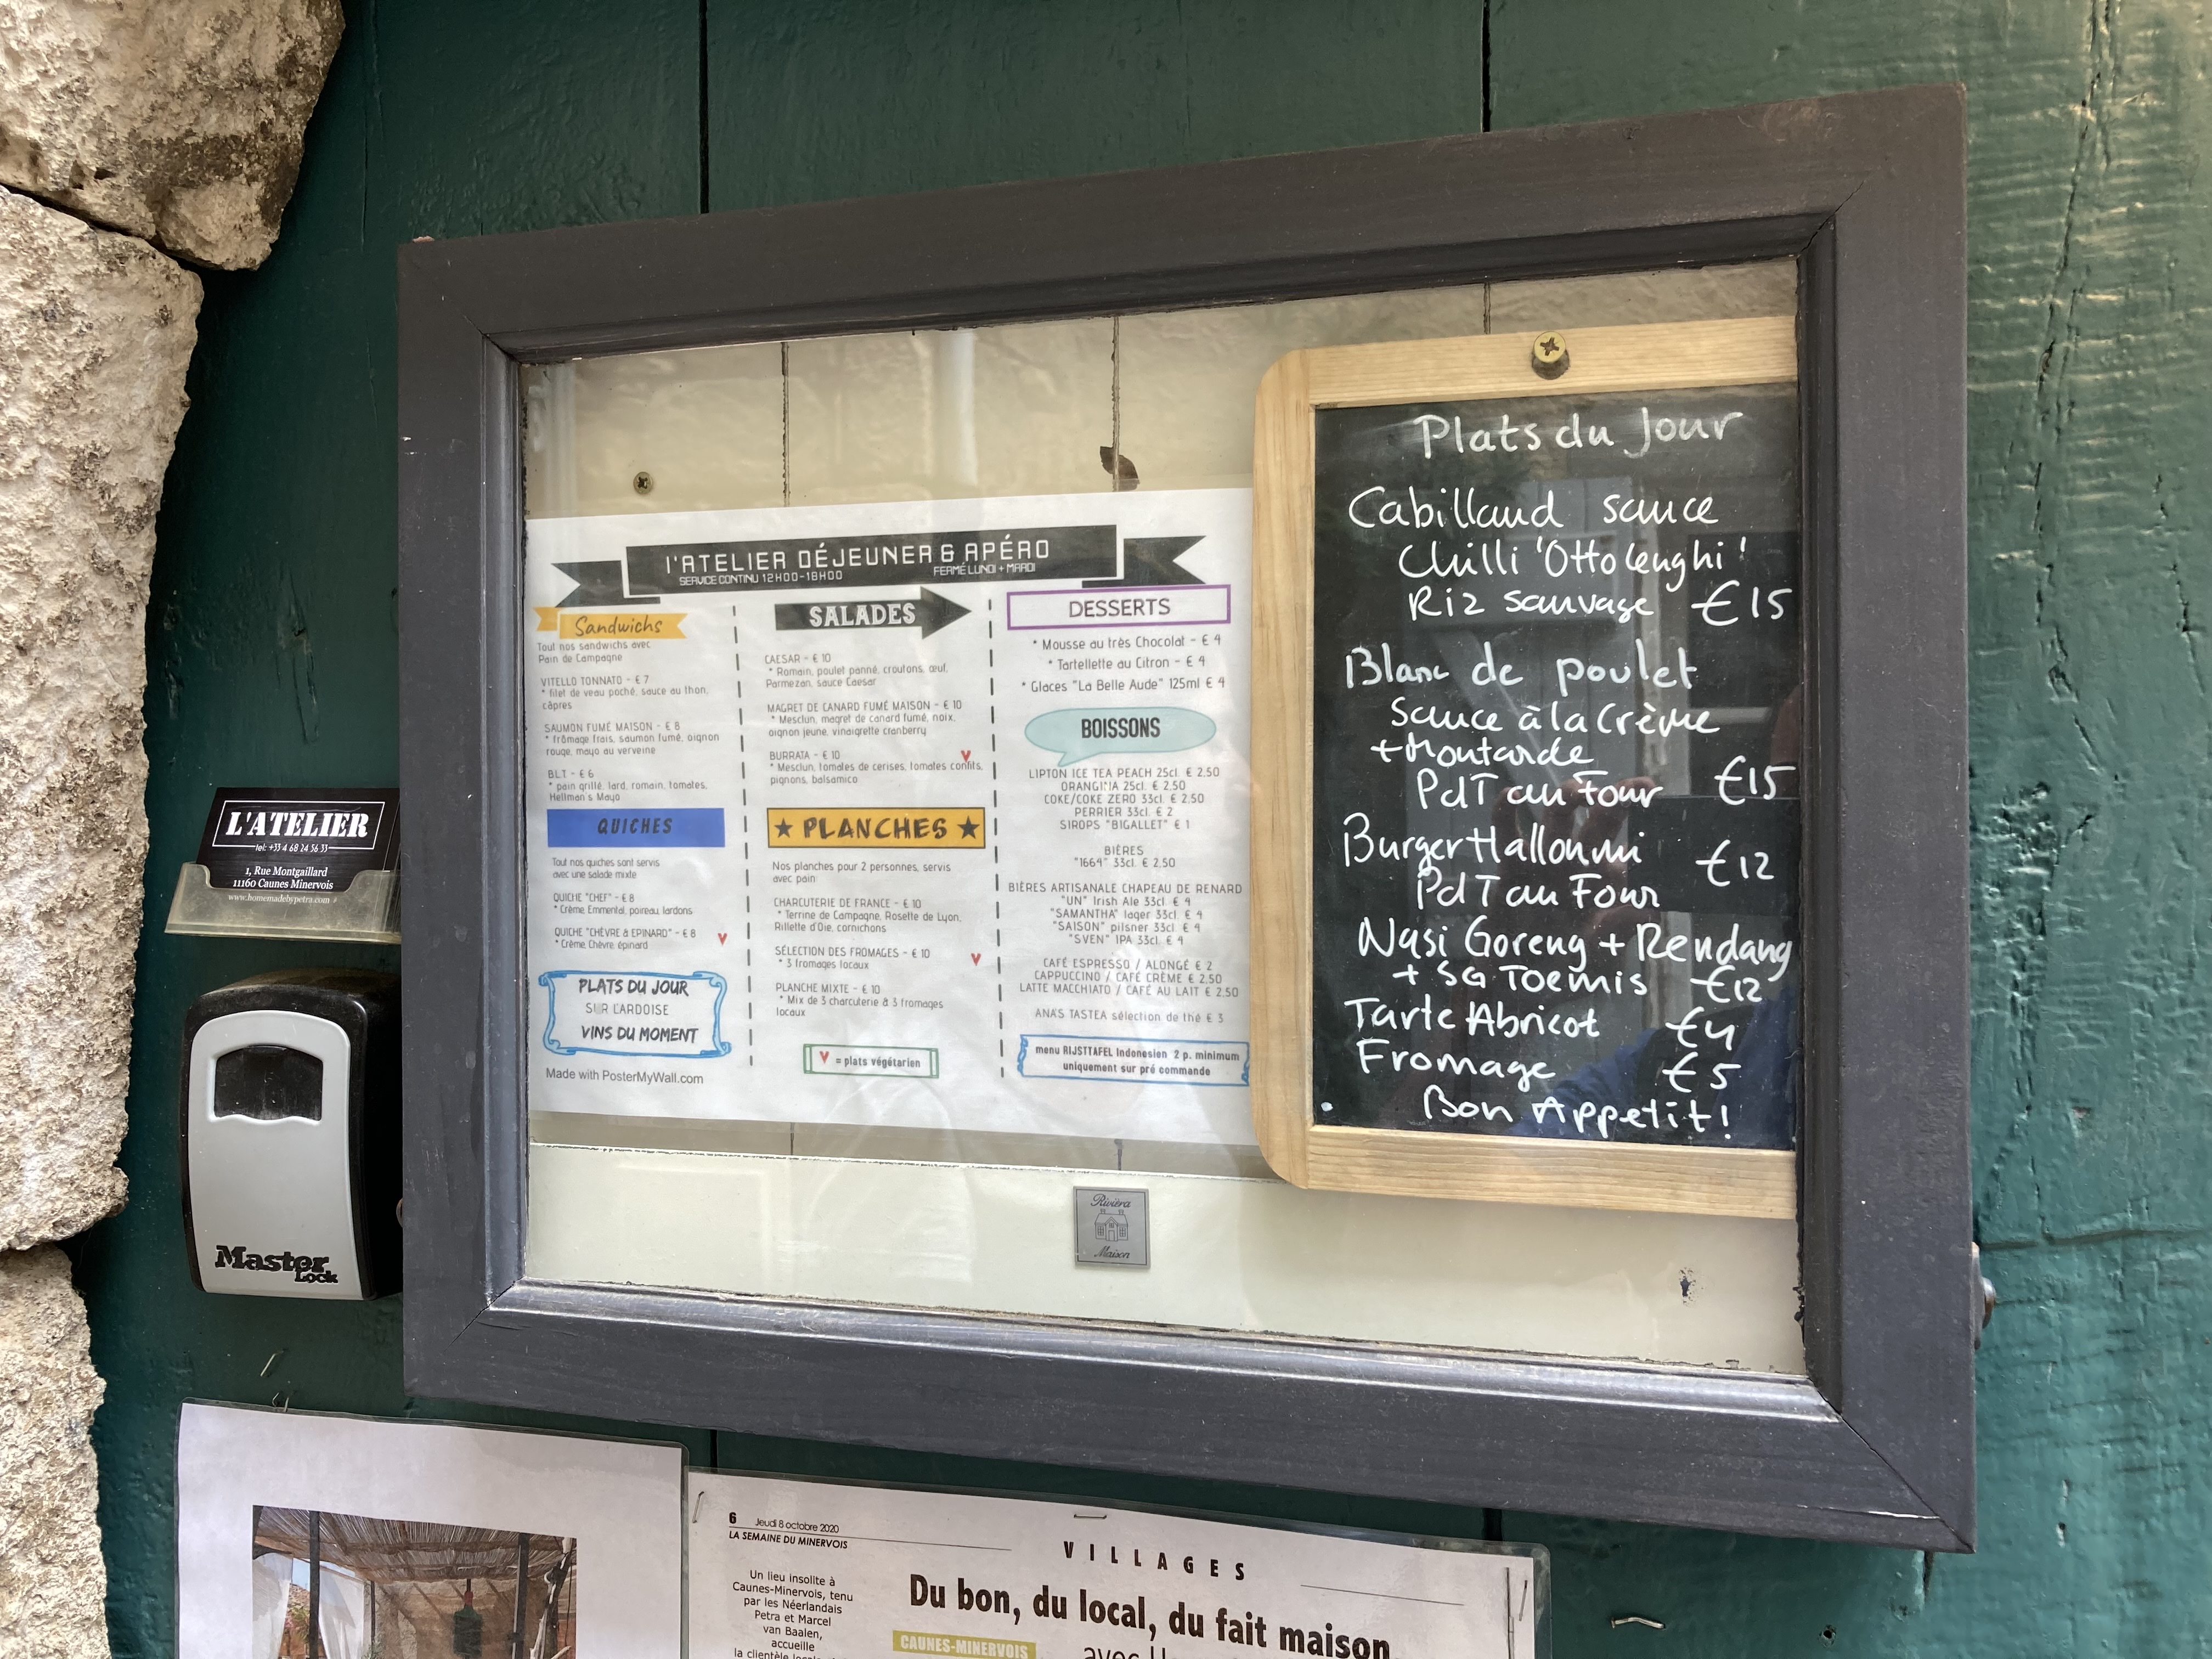 l'ATELIER DÉJEUNER & APÉRO
SERVICE CONTINU 12H00-18H00 FERMÉ LUNDI + MARDI
Sandwichs
Tout nos sandwichs avec
Pain de Campagne
VITELLO TONNATO - € 7
* filet de veau poché, sauce au thon,
câpres
SAUMON FUMÉ MAISON - € 8
* frômage frais, saumon fumé, oignon
rouge, mayo au verveine
BLT - € 6
* pain grillé, lard, romain, tomates,
Hellman's Mayo
QUICHES
Tout nos quiches sont servis
avec une salade mixte
QUICHE "CHEF" - € 8
* Crème, Emmental, poireau, lardons
QUICHE "CHÈVRE & EPINARD" - € 8
* Crème, Chèvre, épinard
PLATS DU JOUR
SUR L'ARDOISE
VINS DU MOMENT
Made with PosterMyWall.com
SALADES
CAESAR - € 10
* Romain, poulet panné, croutons, œuf,
Parmezan, sauce Caesar
MAGRET DE CANARD FUMÉ MAISON - € 10
* Mesclun, magret de canard fumé, noix,
oignon jeune, vinaigrette cranberry
BURRATA - € 10
* Mesclun, tomates de cerises, tomates confits,
pignons, balsamico
★ PLANCHES ★
Nos planches pour 2 personnes, servis
avec pain
CHARCUTERIE DE FRANCE - € 10
* Terrine de Campagne, Rosette de Lyon,
Rillette d'Oie, cornichons
SÉLECTION DES FROMAGES - € 10
* 3 fromages locaux
PLANCHE MIXTE - € 10
* Mix de 3 charcuterie & 3 fromages
locaux
♥ = plats végétarien
DESSERTS
* Mousse au très Chocolat - € 4
* Tartellette au Citron - € 4
* Glaces "La Belle Aude" 125ml € 4
BOISSONS
LIPTON ICE TEA PEACH 25cl. € 2,50
ORANGINA 25cl. € 2,50
COKE/COKE ZERO 33cl. € 2,50
PERRIER 33cl. € 2
SIROPS "BIGALLET" € 1
BIÈRES
"1664" 33cl. € 2,50
BIÈRES ARTISANALE CHAPEAU DE RENARD
"UN" Irish Ale 33cl. € 4
"SAMANTHA" lager 33cl. € 4
"SAISON" pilsner 33cl. € 4
"SVEN" IPA 33cl. € 4
CAFÉ ESPRESSO / ALONGÉ € 2
CAPPUCCINO / CAFÉ CRÈME € 2,50
LATTE MACCHIATO / CAFÉ AU LAIT € 2,50
ANA'S TASTEA sélection de thé € 3
menu RIJSTTAFEL Indonesien 2 p. minimum
uniquement sur pré commande
Plats du Jour
Cabillaud sauce
Chilli 'Ottolenghi'
Riz sauvage €15
Blanc de poulet
sauce à la Crème
+ Moutarde
PdT au Four €15
Burger Halloumi €12
PdT au Four
Nasi Goreng + Rendang
+ SG Toemis €12
Tarte Abricot €4
Fromage €5
Bon Appetit!
L'ATELIER
tel: +33 4 68 24 56 33
1, Rue Montgaillard
11160 Caunes Minervois
www.homemadebypetra.com
Master
Lock
Rivièra
Maison
6 Jeudi 8 octobre 2020
LA SEMAINE DU MINERVOIS
VILLAGES
Un lieu insolite à
Caunes-Minervois, tenu
par les Néerlandais
Petra et Marcel
van Baalen,
accueille
Du bon, du local, du fait maison
CAUNES-MINERVOIS